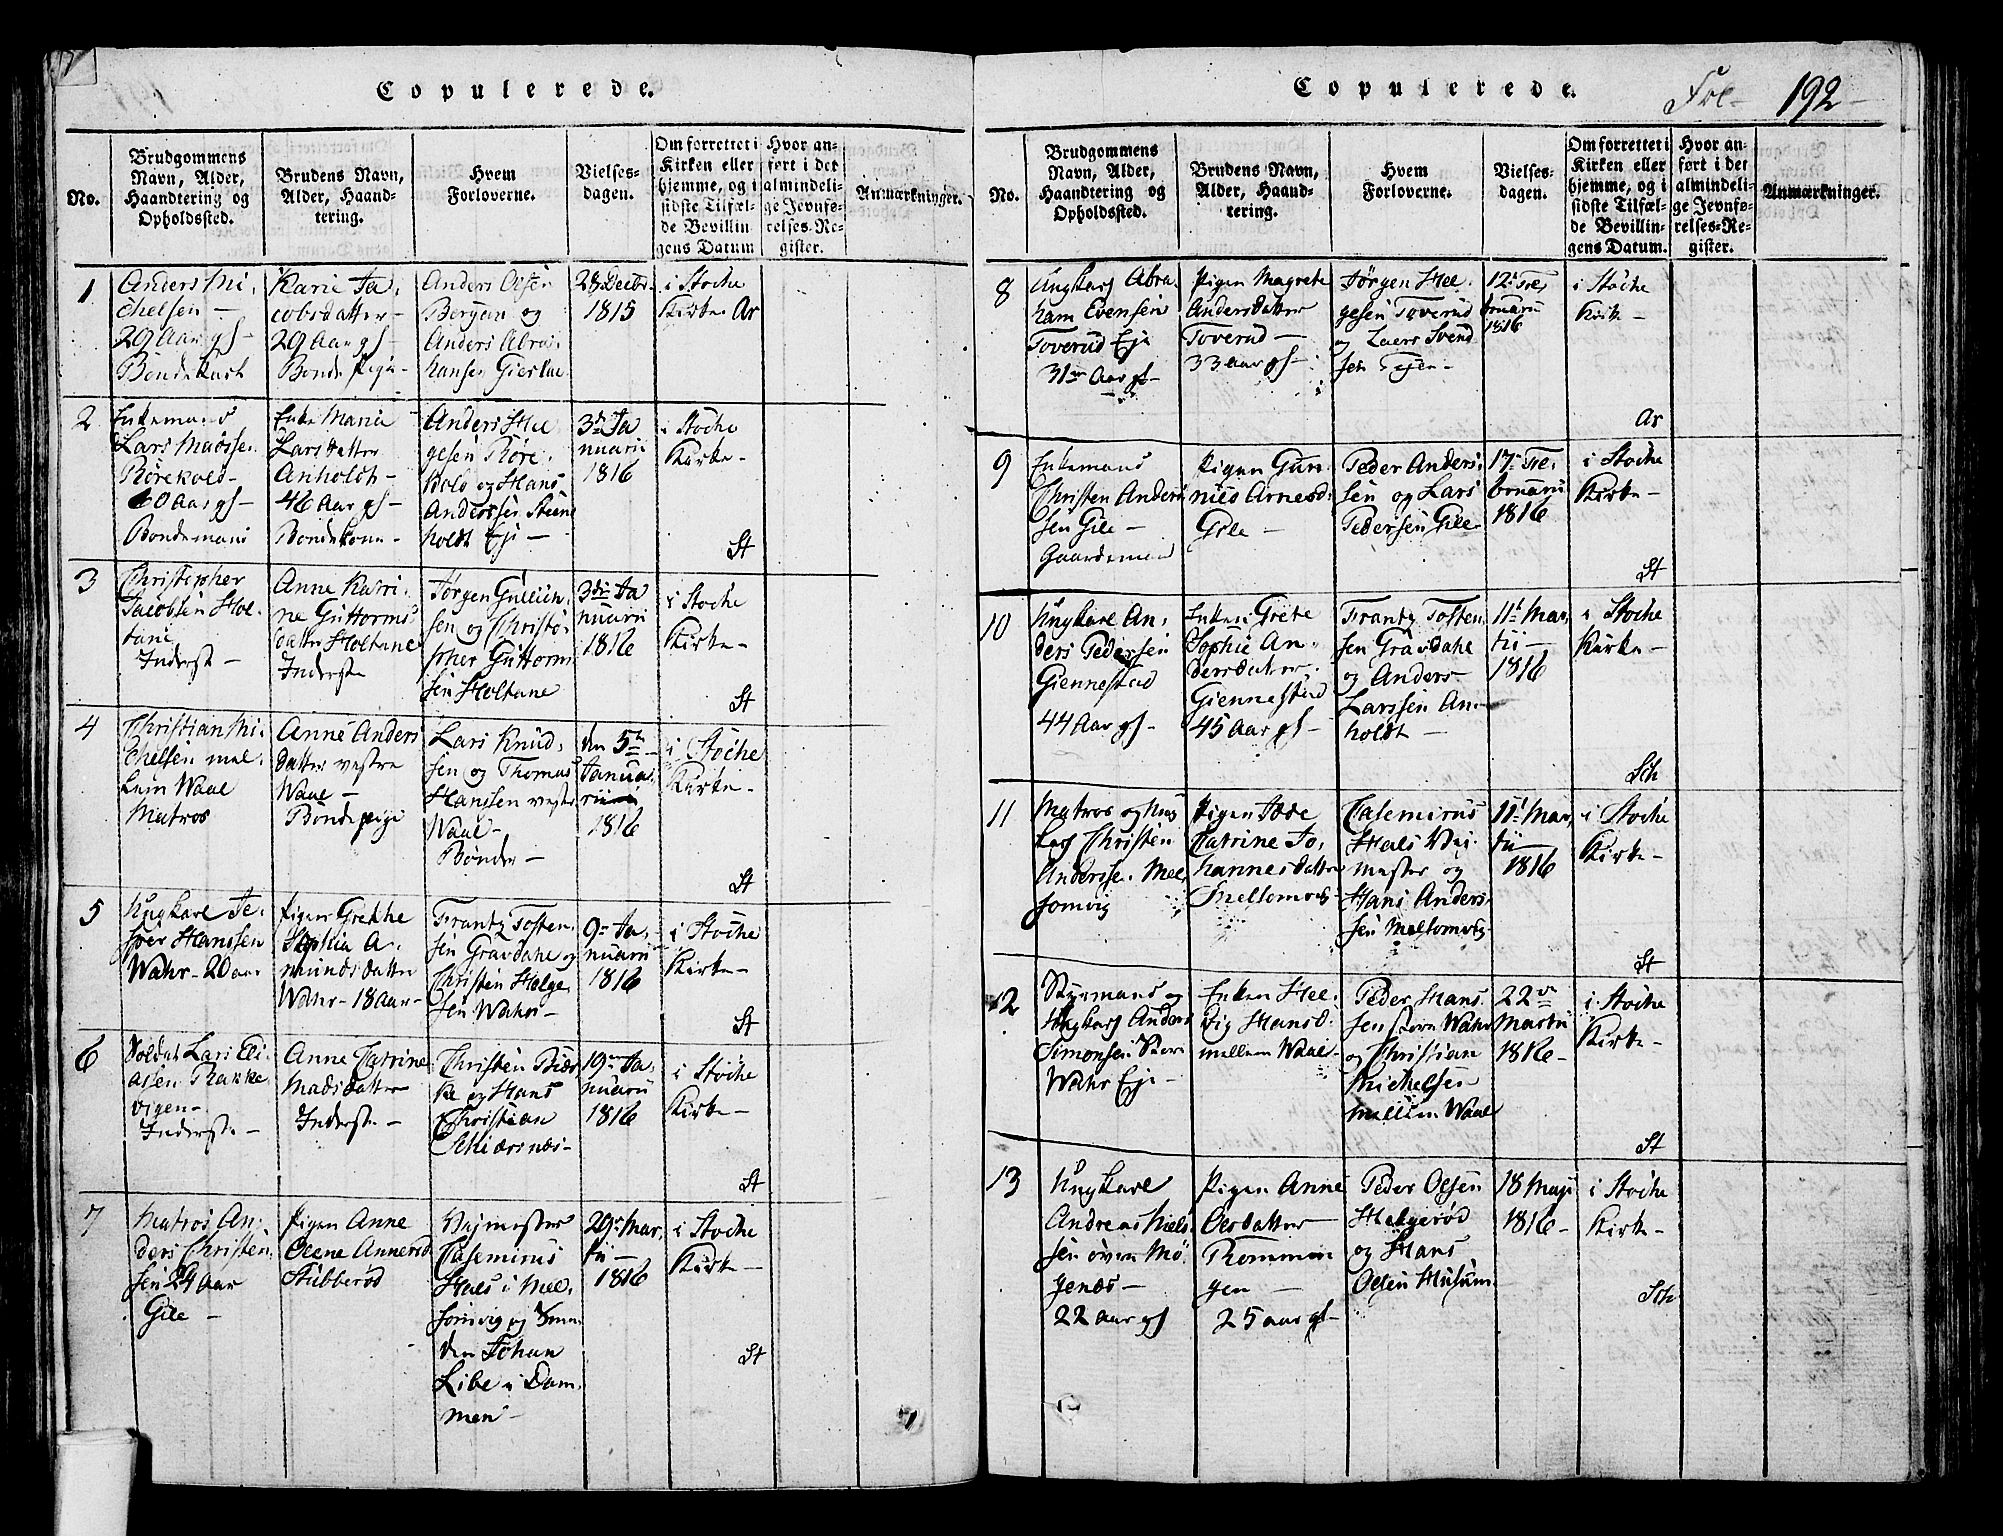 Copulerede.
No.
Brudgommens
Navn, Alder,
Haandtering og
Opholdssted.
Brudens Navn,
Alder, Haand-
tering.
Hvem
Forloverne.
Vielses-
dagen.
Om forrettet i
Kirken eller
hjemme, og i
sidste Tilfæl-
de Bevillin-
gens Datum
Hvor an-
ført i det
almindeli-
ge Jevnfø-
relses-Re-
gister.
Anmærkninger.
1
Anders Mi-
chelsen —
29 Aar gl —
Bondekarl
Karie Ja-
cobsdatter —
29 Aar gl —
Bonde Pige —
Anders Olsen
Bergan og
Anders Abra-
hansen
28 Decbr.
1815
i Stocke
Kirke Ar
2
Enkemand
Lars
60 Aar gl —
Bondemand
Enke Marie
Larsdatter
Anholdt —
46 Aar gl —
Bondekone —
Anders Hel-
gesen Røre-
kold og Hans
Anderssen Steens
holdt Eje —
3die Ja
nuarii
1816
i Stocke
Kirke —
St
3
Christopher
Jacobsen Hol-
tane
Inderst —
Anne Katri-
ne Guttorms
datter Holtane
Inderste
Jørgen
sen og Christo-
pher Guttorm
sen Holtane
3die Ja
nuarii
1816
i Stocke
Kirke —
St
4
Christian Mi-
chelsen mel-
lem Waale
Matros
Anne Anders
datter vestre
Waale —
Bondepige
Lars Knud-
sen og Thomas
Hanssen vestre
Waale —
Bønder —
den 5te
Januar
rii
1816
i Stocke
Kirke —
St
5
Ungkarl Je-
sper Hanssen
Wahr — 20 aar
Pigen Grethe
Sophia A-
mundsdatter
Wahr — 18 aar —
Frantz Tosten-
sen Gravdahl og
Christen Helge-
sen Wahr —
9de Ja-
nuarii
1816
i Stocke
Kirke —
St
6
Soldat Lars Eli-
assen Rakke-
vigen —
Inderste —
Anne Catrine
Madsdatter
Inderste —
Christen
og Hans
Christian
Skiærsnæs —
19de Ja-
nuarii
1816
i Stocke
Kirke —
St
7
Matros An-
ders Christen-
sen 24 aar
Gile —
Pigen Anne
Olene Annersd
Stubberød
Vejmester
Casemirus
Hals i Mel-
somvig og
den Johan
Libe i Dam-
men —
29de Mar-
tii —
1816
i Stocke
Kirke —
St
Copulerede.
Fol — 192 —
No.
Brudgommens
Navn, Alder,
Haandtering og
Opholdssted.
Brudens Navn,
Alder, Haand-
tering.
Hvem
Forloverne.
Vielses-
dagen.
Om forrettet i
Kirken eller
hjemme, og i
sidste Tilfæl-
de Bevillin-
gens Datum.
Hvor an-
ført i det
almindeli-
ge Jevnfø-
relses-Re-
gister.
Anmærkninger.
8
Ungkarl Abra
ham Evensen
Toverud Eje
31 Aar gl —
Pigen Magrete
Andersdatter
Toverud —
33 aar gl —
Jørgen Hel-
gesen Toverud
og Laers Svend
sen
12te Fe-
bruarii
1816
i Stocke
Kirke —
Ar
9
Enkemand
Christen Anders
sen Gile —
Gaardemand
Pigen Gun
nild Arnesd
Gile —
Peder Anders-
sen og Lars
Pedersen Gile
17de Fe-
bruarii
1816
i Stocke
Kirke —
St
10
Ungkarl An-
ders Pedersen
Giennestad
44 Aar gl —
Enken Grete
Sophie An-
dersdatter
Giennestad
45 aar gl —
Frantz Tosten
sen Gravdahl
og Anders
Larssen An-
holdt —
11te Mar-
tii —
1816
i Stocke
Kirke —
Sch
11
Matros og Ung
karl Christen
Anderssen Mel
somvig
Pigen
Catrine Jo-
hannesdatter
Mellomvig
Casemirus
Hals Vei-
mester og
Hans Anders-
sen Melsomvig
11te Mar-
tii —
1816
i Stocke
Kirke —
St
12
Styrmand og
Ungkarl Anders
Simonsen Store
Wahr Eje —
Enken Hel-
vig Hansd.
mellem Waale —
Peder Hans
sen store Wahr
og Christian
Michelsen
mellem Waale
22de
Martii
1816 —
i Stocke
Kirke —
St
13
Ungkarl
Andreas Niels
sen øvre Mø-
genæs —
22 aar gl
Pigen Anne
Olsdatter
Rommen
gen —
25 aar gl —
Peder Olsen
Helgerød
og Hans
Olsen Husum
18 Maji
1816 —
i Stocke
Kirke —
Sch